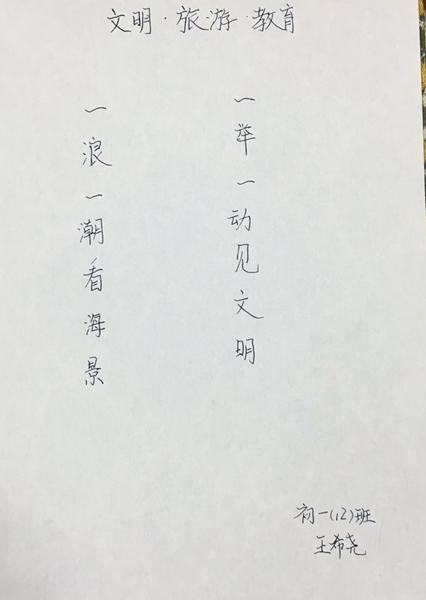 文明·旅游·教育
一举一动见文明
一浪一潮看海景
初一(12)班
王希尧